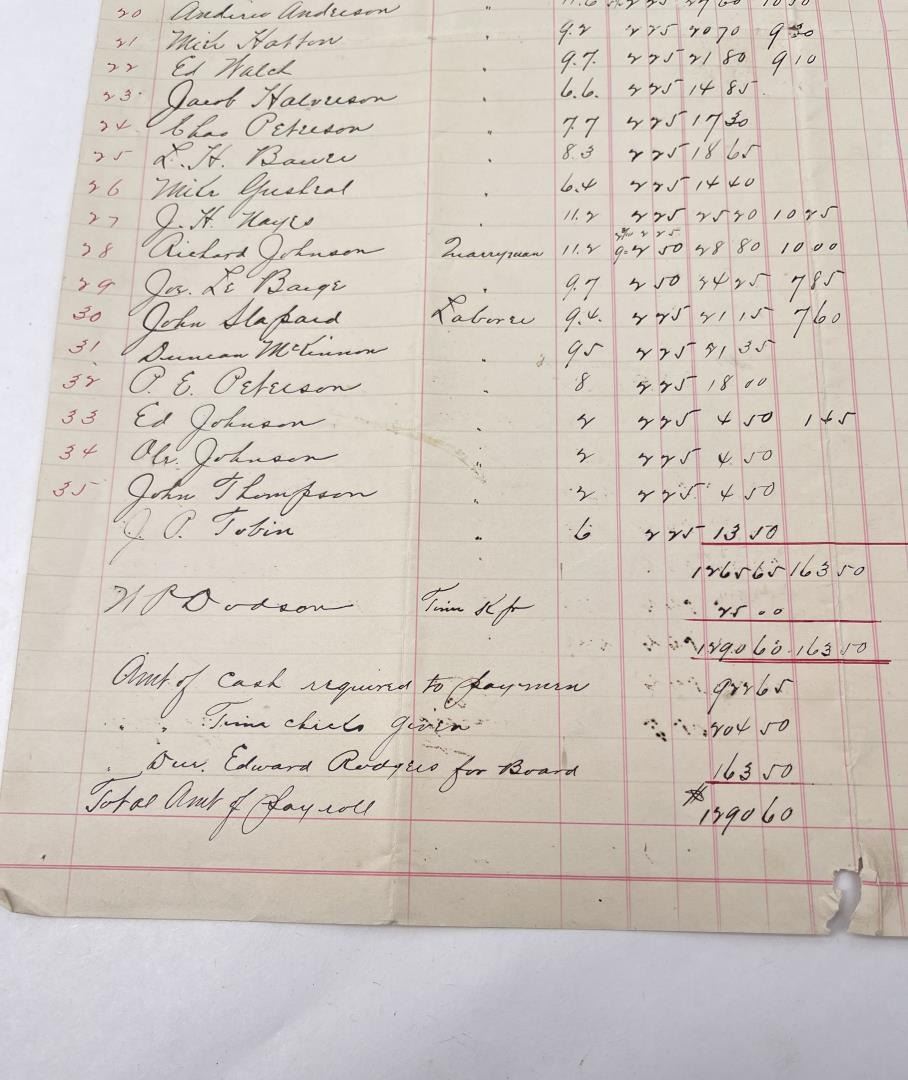 20 Andrew Anderson " 11.6 2 25 27 60 10 50
21 Mich Hatton " 9.2 2 25 20 70 9 30
22 Ed Walch " 9.7. 2 25 21 80 9 10
23 Jacob Halverson " 6.6. 2 25 14 85
24 Chas Peterson " 7.7 2 25 17 30
25 L. H. Bauer " 8.3 2 25 18 65
26 Mike " 6.4 2 25 14 40
27 J. H. Hayes " 11.2 2 25 25 20 10 25
28 Richard Johnson Quarryman 11.2 2 50 28 80 10 00
29 Joe. Le Barge " 9.7 2 50 24 25 7 85
30 John Slapard Laborer 9.4. 2 25 21 15 7 60
31 Duncan McKinnon " 9 5 2 25 21 35
32 P. E. Peterson " 8 2 25 18 00
33 Ed Johnson " 2 2 25 4 50 1 45
34 Ole. Johnson " 2 2 25 4 50
35 John Thompson " 2 2 25 4 50
J. P. Tobin " 6 2 25 13 50
" 1265 65 163 50
N P Dodson Time Kpr 25 00
1290 60 163 50
Amt of cash required to pay men 922 65
" " Time checks given 204 50
" Due. Edward Rodgers for Board 163 50
Total Amt of payroll $ 1290 60